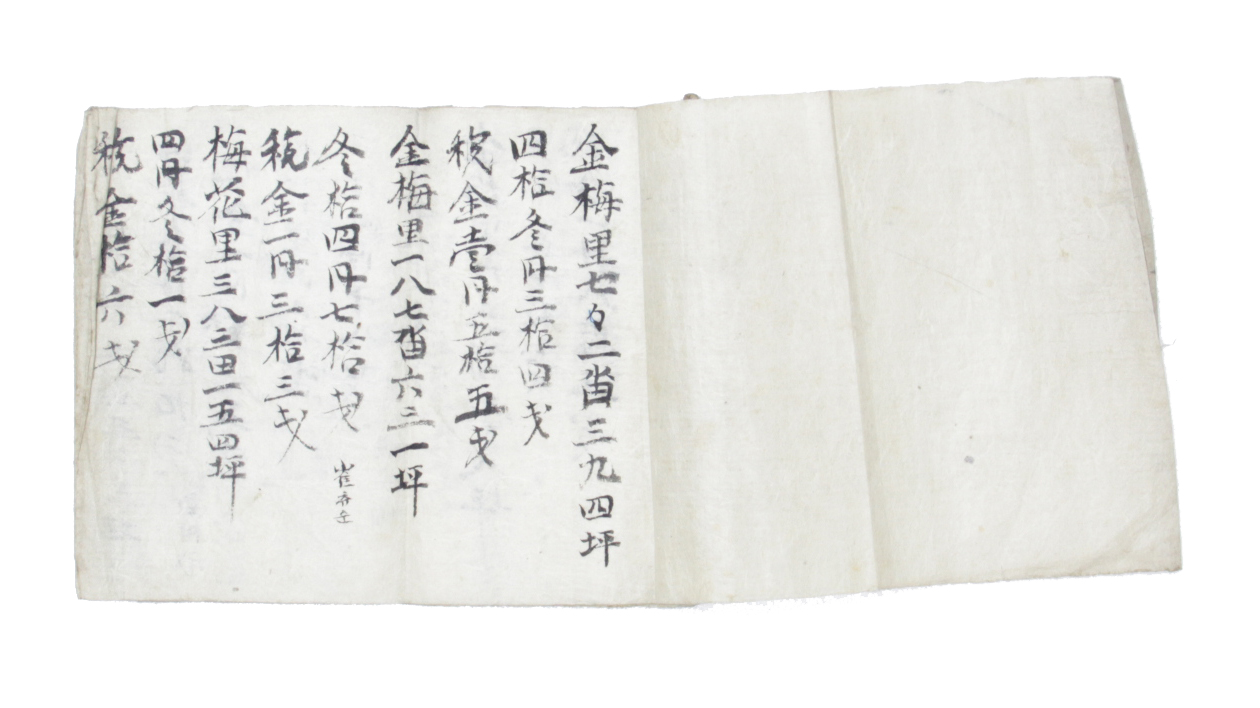 金梅里七々二畓三九四坪
四拾冬円三拾四戋
税金壹円五拾五戋
金梅里一八七畓六三一坪
冬拾四円七拾戋 崔
税金一円三拾三戋
梅花里三八二田一五四坪
四円冬拾一戋
税金拾六戋